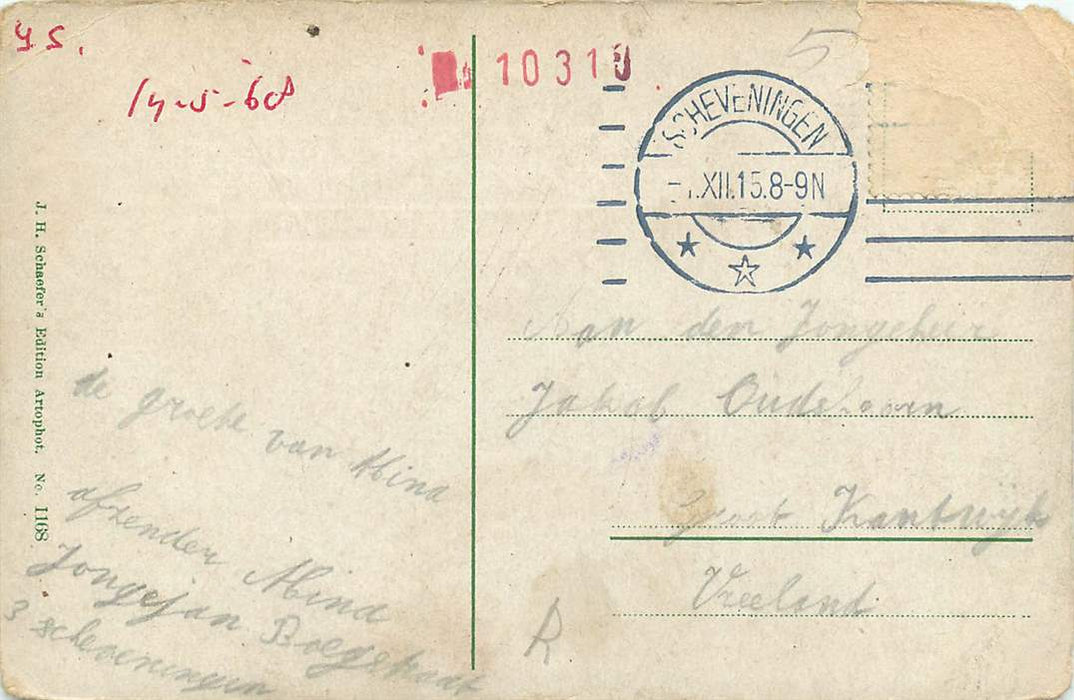 14-5-60
10310
5
SCHEVENINGEN
.XII.15.8-9N
J. H. Schaefer's Edition Artophot. No. 1168
de groete van Mina
afzender Mina
Jongejan
3 scheveningen
Aan den Jongeheer
Jakob Oudshoorn
Vreeland
R